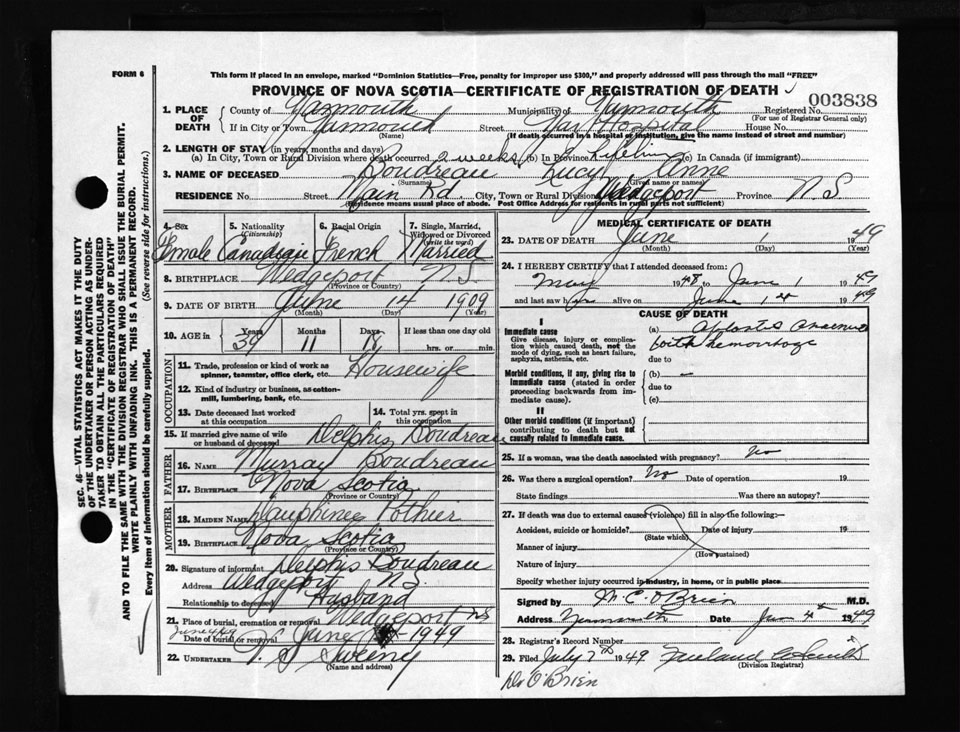 FORM 6
This form if placed in an envelope, marked "Dominion Statistics—Free, penalty for improper use $300," and properly addressed will pass through the mail "FREE"
PROVINCE OF NOVA SCOTIA—CERTIFICATE OF REGISTRATION OF DEATH
003838
1. PLACE OF DEATH
County of Yarmouth Municipality of Yarmouth Registered No.
(For use of Registrar General only)
If in City or Town Yarmouth Street Yar Hospital House No.
(Name) (If death occurred in a hospital or institution, give the name instead of street and number)
2. LENGTH OF STAY (in years, months and days)
(a) In City, Town or Rural Division where death occurred 2 weeks (b) In Province Lifetime (c) In Canada (if immigrant)
3. NAME OF DECEASED Boudreau Lucy Anne
(Surname) (Given name or names)
RESIDENCE No. Street Main Rd. City, Town or Rural Division Wedgeport Province N.S.
(Residence means usual place of abode. Post Office Address for residents in rural parts not sufficient)
4. Sex 5. Nationality (Citizenship) 6. Racial Origin 7. Single, Married, Widowed or Divorced (write the word)
Female Canadian French Married
8. BIRTHPLACE Wedgeport N.S.
(Province or Country)
9. DATE OF BIRTH June 14 1909
(Month) (Day) (Year)
10. AGE in Years Months Days If less than one day old
39 11 18 hrs. or min.
OCCUPATION
11. Trade, profession or kind of work as spinner, teamster, office clerk, etc. Housewife
12. Kind of industry or business, as cotton-mill, lumbering, bank, etc.
13. Date deceased last worked at this occupation
14. Total yrs. spent in this occupation
15. If married give name of wife or husband of deceased Delphis Boudreau
FATHER
16. NAME Murray Boudreau
17. BIRTHPLACE Nova Scotia
(Province or Country)
MOTHER
18. MAIDEN NAME Dauphinee Pothier
19. BIRTHPLACE Nova Scotia
(Province or Country)
20. Signature of informant Delphis Boudreau
Address Wedgeport N.S.
Relationship to deceased Husband
21. Place of burial, cremation or removal Wedgeport NS
Date of burial or removal June 1949
22. UNDERTAKER V. S. Sweeny
(Name and address)
MEDICAL CERTIFICATE OF DEATH
23. DATE OF DEATH June 1949
(Month) (Day)
24. I HEREBY CERTIFY that I attended deceased from:
May 1948 to June 1 1949
and last saw her alive on June 1st 1949
CAUSE OF DEATH
I
Immediate cause
Give disease, injury or complication which caused death, not the mode of dying, such as heart failure, asphyxia, asthenia, etc.
(a) Aplastic Anaemia
with hemorrhage
due to
Morbid conditions, if any, giving rise to immediate cause (stated in order proceeding backwards from immediate cause).
(b) —
due to
(c)
II
Other morbid conditions (if important) contributing to death but not causally related to immediate cause.
25. If a woman, was the death associated with pregnancy? No
26. Was there a surgical operation? No Date of operation 19
State findings Was there an autopsy?
27. If death was due to external causes (violence) fill in also the following:—
Accident, suicide or homicide? Date of injury 19
(State which)
Manner of injury
(How sustained)
Nature of injury
Specify whether injury occurred in industry, in home, or in public place
Signed by M. C. O'Brien M.D.
Address Yarmouth Date Jun 4th 1949
28. Registrar's Record Number
29. Filed July 7th 1949
(Division Registrar)
Dr O'Brien
SEC. 46—VITAL STATISTICS ACT MAKES IT THE DUTY
OF THE UNDERTAKER OR PERSON ACTING AS UNDER-
TAKER TO OBTAIN ALL THE PARTICULARS REQUIRED
IN THE "CERTIFICATE OF REGISTRATION OF DEATH"
AND TO FILE THE SAME WITH THE DIVISION REGISTRAR WHO SHALL ISSUE THE BURIAL PERMIT.
WRITE PLAINLY WITH UNFADING INK. THIS IS A PERMANENT RECORD.
Every item of information should be carefully supplied. (See reverse side for instructions.)